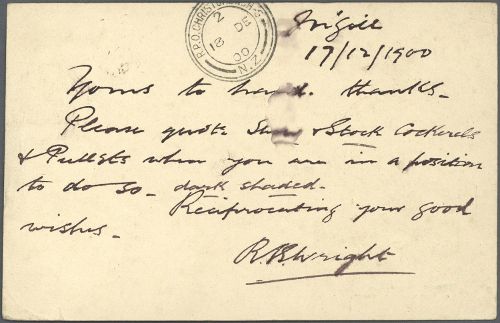 R.P.O. CHRISTCHURCH-S.
2
18 DE
00
N.Z.
In'gill
17/12/1900
Yours to hand. thanks.
Please quote & Stock Cockerels
& Pullets when you are in a position
to do so. dark shaded.
Reciprocating your good
wishes.
R.B. Wright